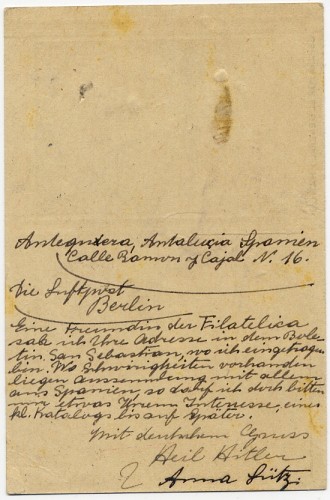 Antequera, Antalucia Spanien
Calle Ramon y Cajal N. 16.
Die Luftpost
Berlin
Eine Freundin der Filatelica
sah ich Ihre Adresse in dem Bole-
tin, San Sebastian, wo ich eingetragen
bin. Wo Schwirigkeiten vorhanden
liegen aussendung mit allem
aus Spanien, so darf ich doch bitten
um etwas Ihrem Interesse, eines
kl. Katalogs bis auf Später.
Mit deutschem Gruss
Heil Hitler
Anna